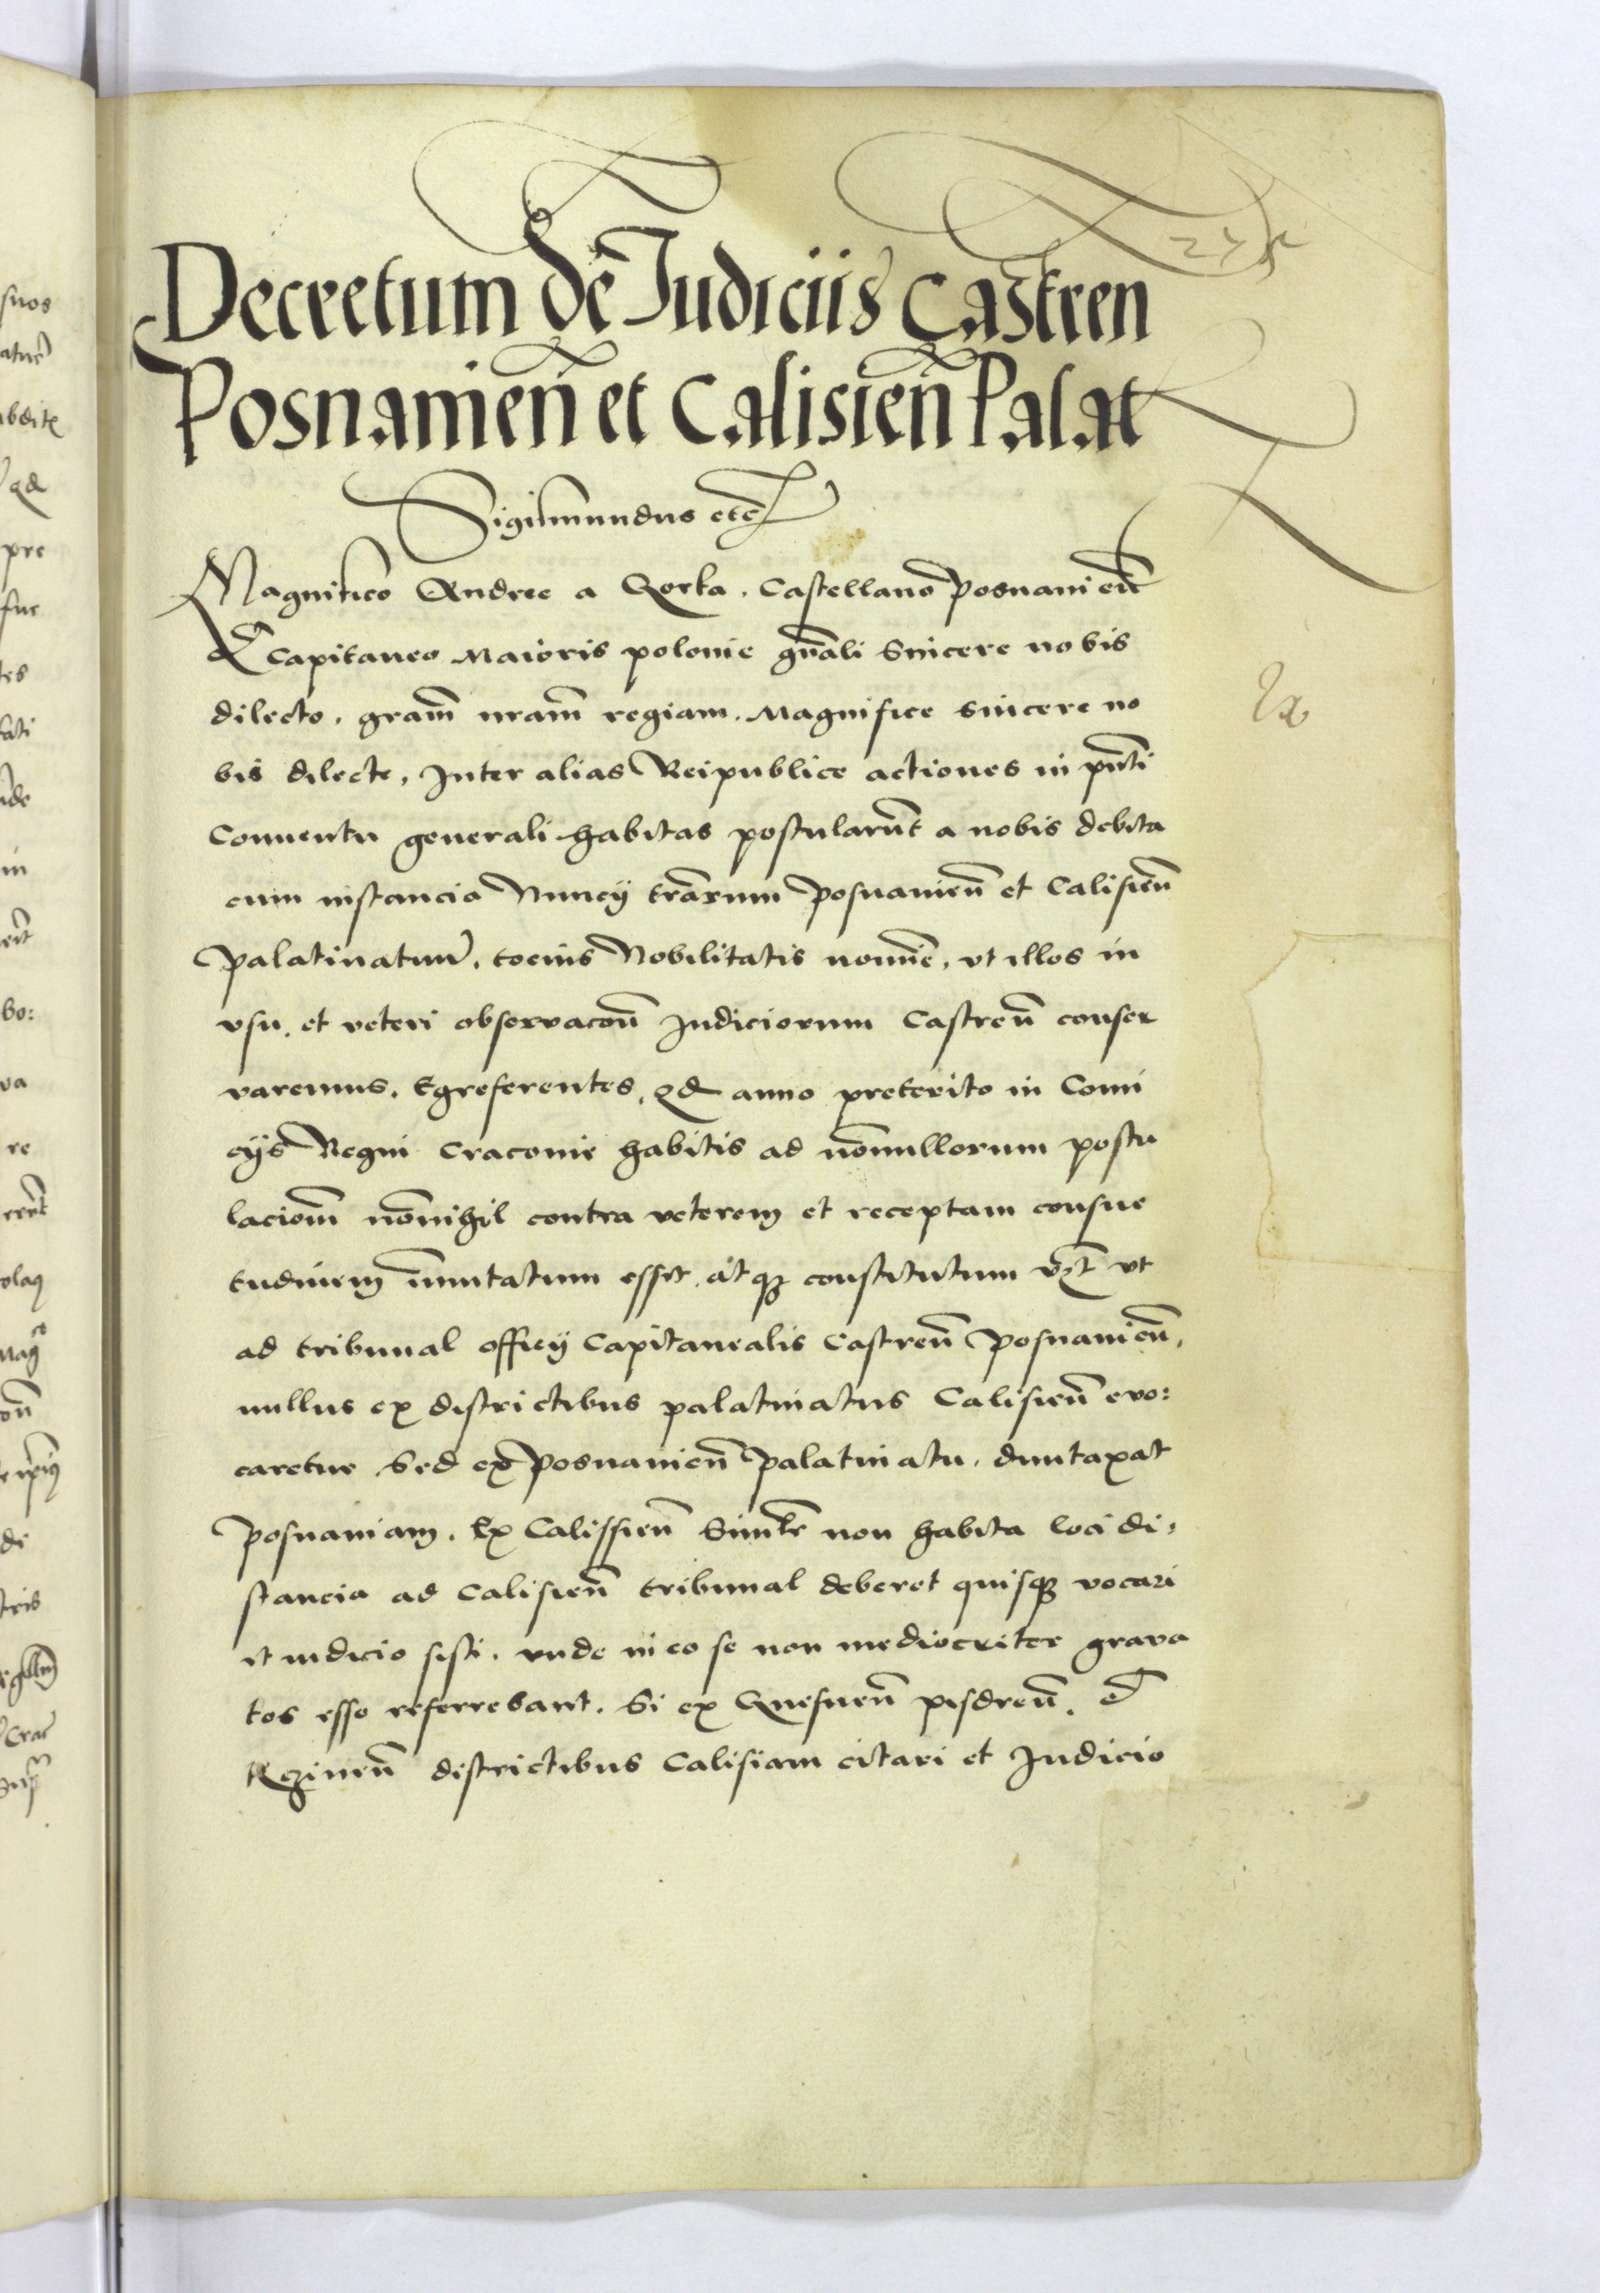 Decretum de Iudiciis Castren
Posnanien̄ et Calisien̄ Palat
Sigismundus etc̄
Magnifico Andree a Gorka. Castellano Posnanien̄
& Capitaneo Maioris polonie gn̄ali Sincere nobis
dilecto. gram̄ nram̄ regiam. Magnifice sincere no
bis dilecte, Inter alias Reipublice actiones in pn̄ti
Conuentu generali habitas postularūt a nobis debita
cum instancia Nuncij tr̄arum Posnanien̄ et Calisien̄
Palatinatuum. tocius Nobilitatis nomīe, vt illos in
vsu. et veteri obseruacōn̄ Iudiciorum Castren̄ conser
varemus. Egreferentes, qd anno preterito in Comi
cijs Regni Craconie habitis ad nōnullorum postu
laciōm nōnihil contra veterem et receptam consue
tudinem īmutatum esset. atq3 constitutum vz̄t vt
ad tribunal officij Capitanealis Castren̄ Posnanien̄,
nullus ex districtibus palatinatus Calisien̄ evo:
caretur Sed ex Posnanien̄ Palatinatu. duntaxat
Posnaniam. Ex Calissien̄ Simlr̄ non habita loci di,
stancia ad Calisien̄ tribunal deberet quisq3 vocari
et iudicio sisti. vnde in eo se non mediocriter grava
tos esse referrebant. Si ex Gnesnen̄ pisdren̄. &
Kczinen̄ districtibus Calisiam citari et Iudicio